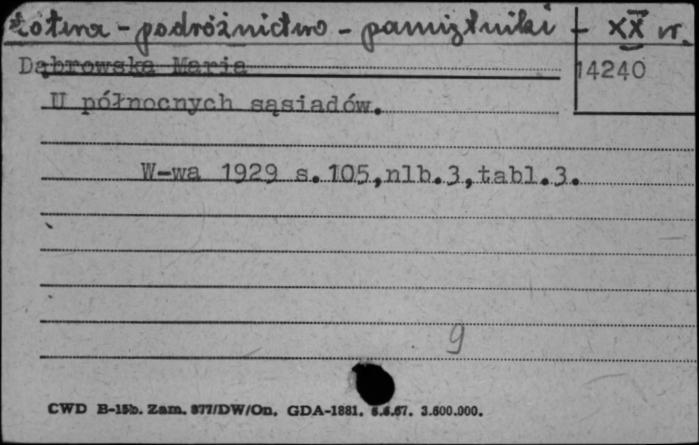 Łotwa - podróżnictwo - pamiętniki - XX w.
Dąbrowska Maria
14240
U północnych sąsiadów.
W-wa 1929 s.105,nlb.3,tabl.3.
9
CWD B-15b. Zam. 877/DW/On. GDA-1881. 6.6.67. 3.600.000.